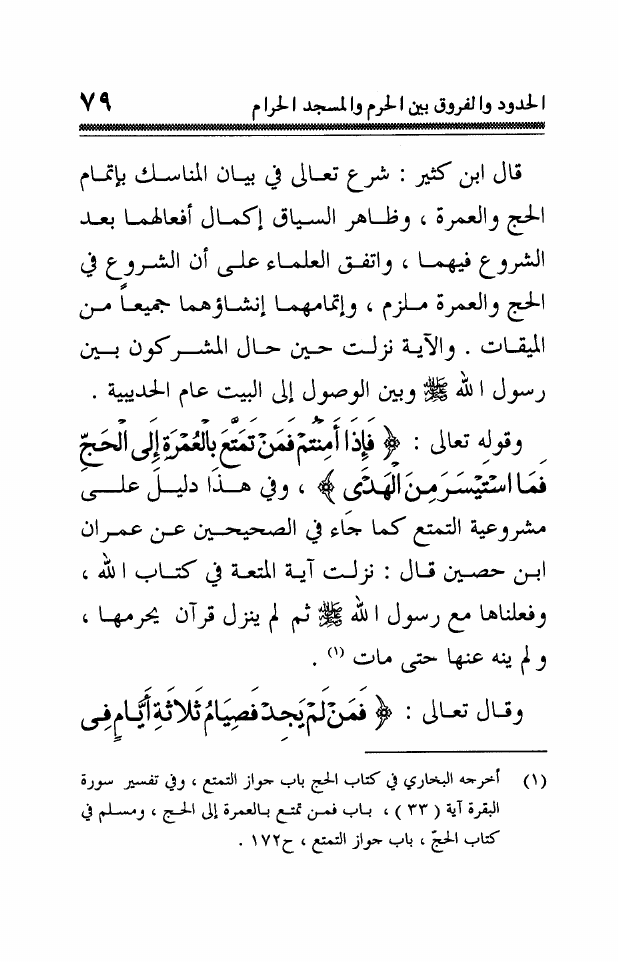 الحدود والفروق بين الحرم والمسجد الحرام ٧٩
قال ابن كثير : شرع تعالى في بيان المناسك بإتمام
الحج والعمرة ، وظاهر السياق إكمال أفعالهما بعد
الشروع فيهما ، واتفق العلماء على أن الشروع في
الحج والعمرة ملزم ، وإتمامهما إنشاؤهما جميعاً من
الميقات . والآية نزلت حين حال المشركون بين
رسول الله ﷺ وبين الوصول إلى البيت عام الحديبية .
وقوله تعالى : ﴿ فَإِذَا أَمِنْتُمْ فَمَنْ تَمَتَّعَ بِالْعُمْرَةِ إِلَى الْحَجِّ
فَمَا اسْتَيْسَرَ مِنَ الْهَدْيِ ﴾ ، وفي هذا دليل على
مشروعية التمتع كما جاء في الصحيحين عن عمران
ابن حصين قال : نزلت آية المتعة في كتاب الله ،
وفعلناها مع رسول الله ﷺ ثم لم ينزل قرآن يحرمها ،
ولم ينه عنها حتى مات (١) .
وقال تعالى : ﴿ فَمَنْ لَمْ يَجِدْ فَصِيَامُ ثَلَاثَةِ أَيَّامٍ فِي
(١) أخرجه البخاري في كتاب الحج باب جواز التمتع ، وفي تفسير سورة
البقرة آية ( ٣٣ ) ، باب فمن تمتع بالعمرة إلى الحج ، ومسلم في
كتاب الحجّ ، باب جواز التمتع ، ح١٧٢ .